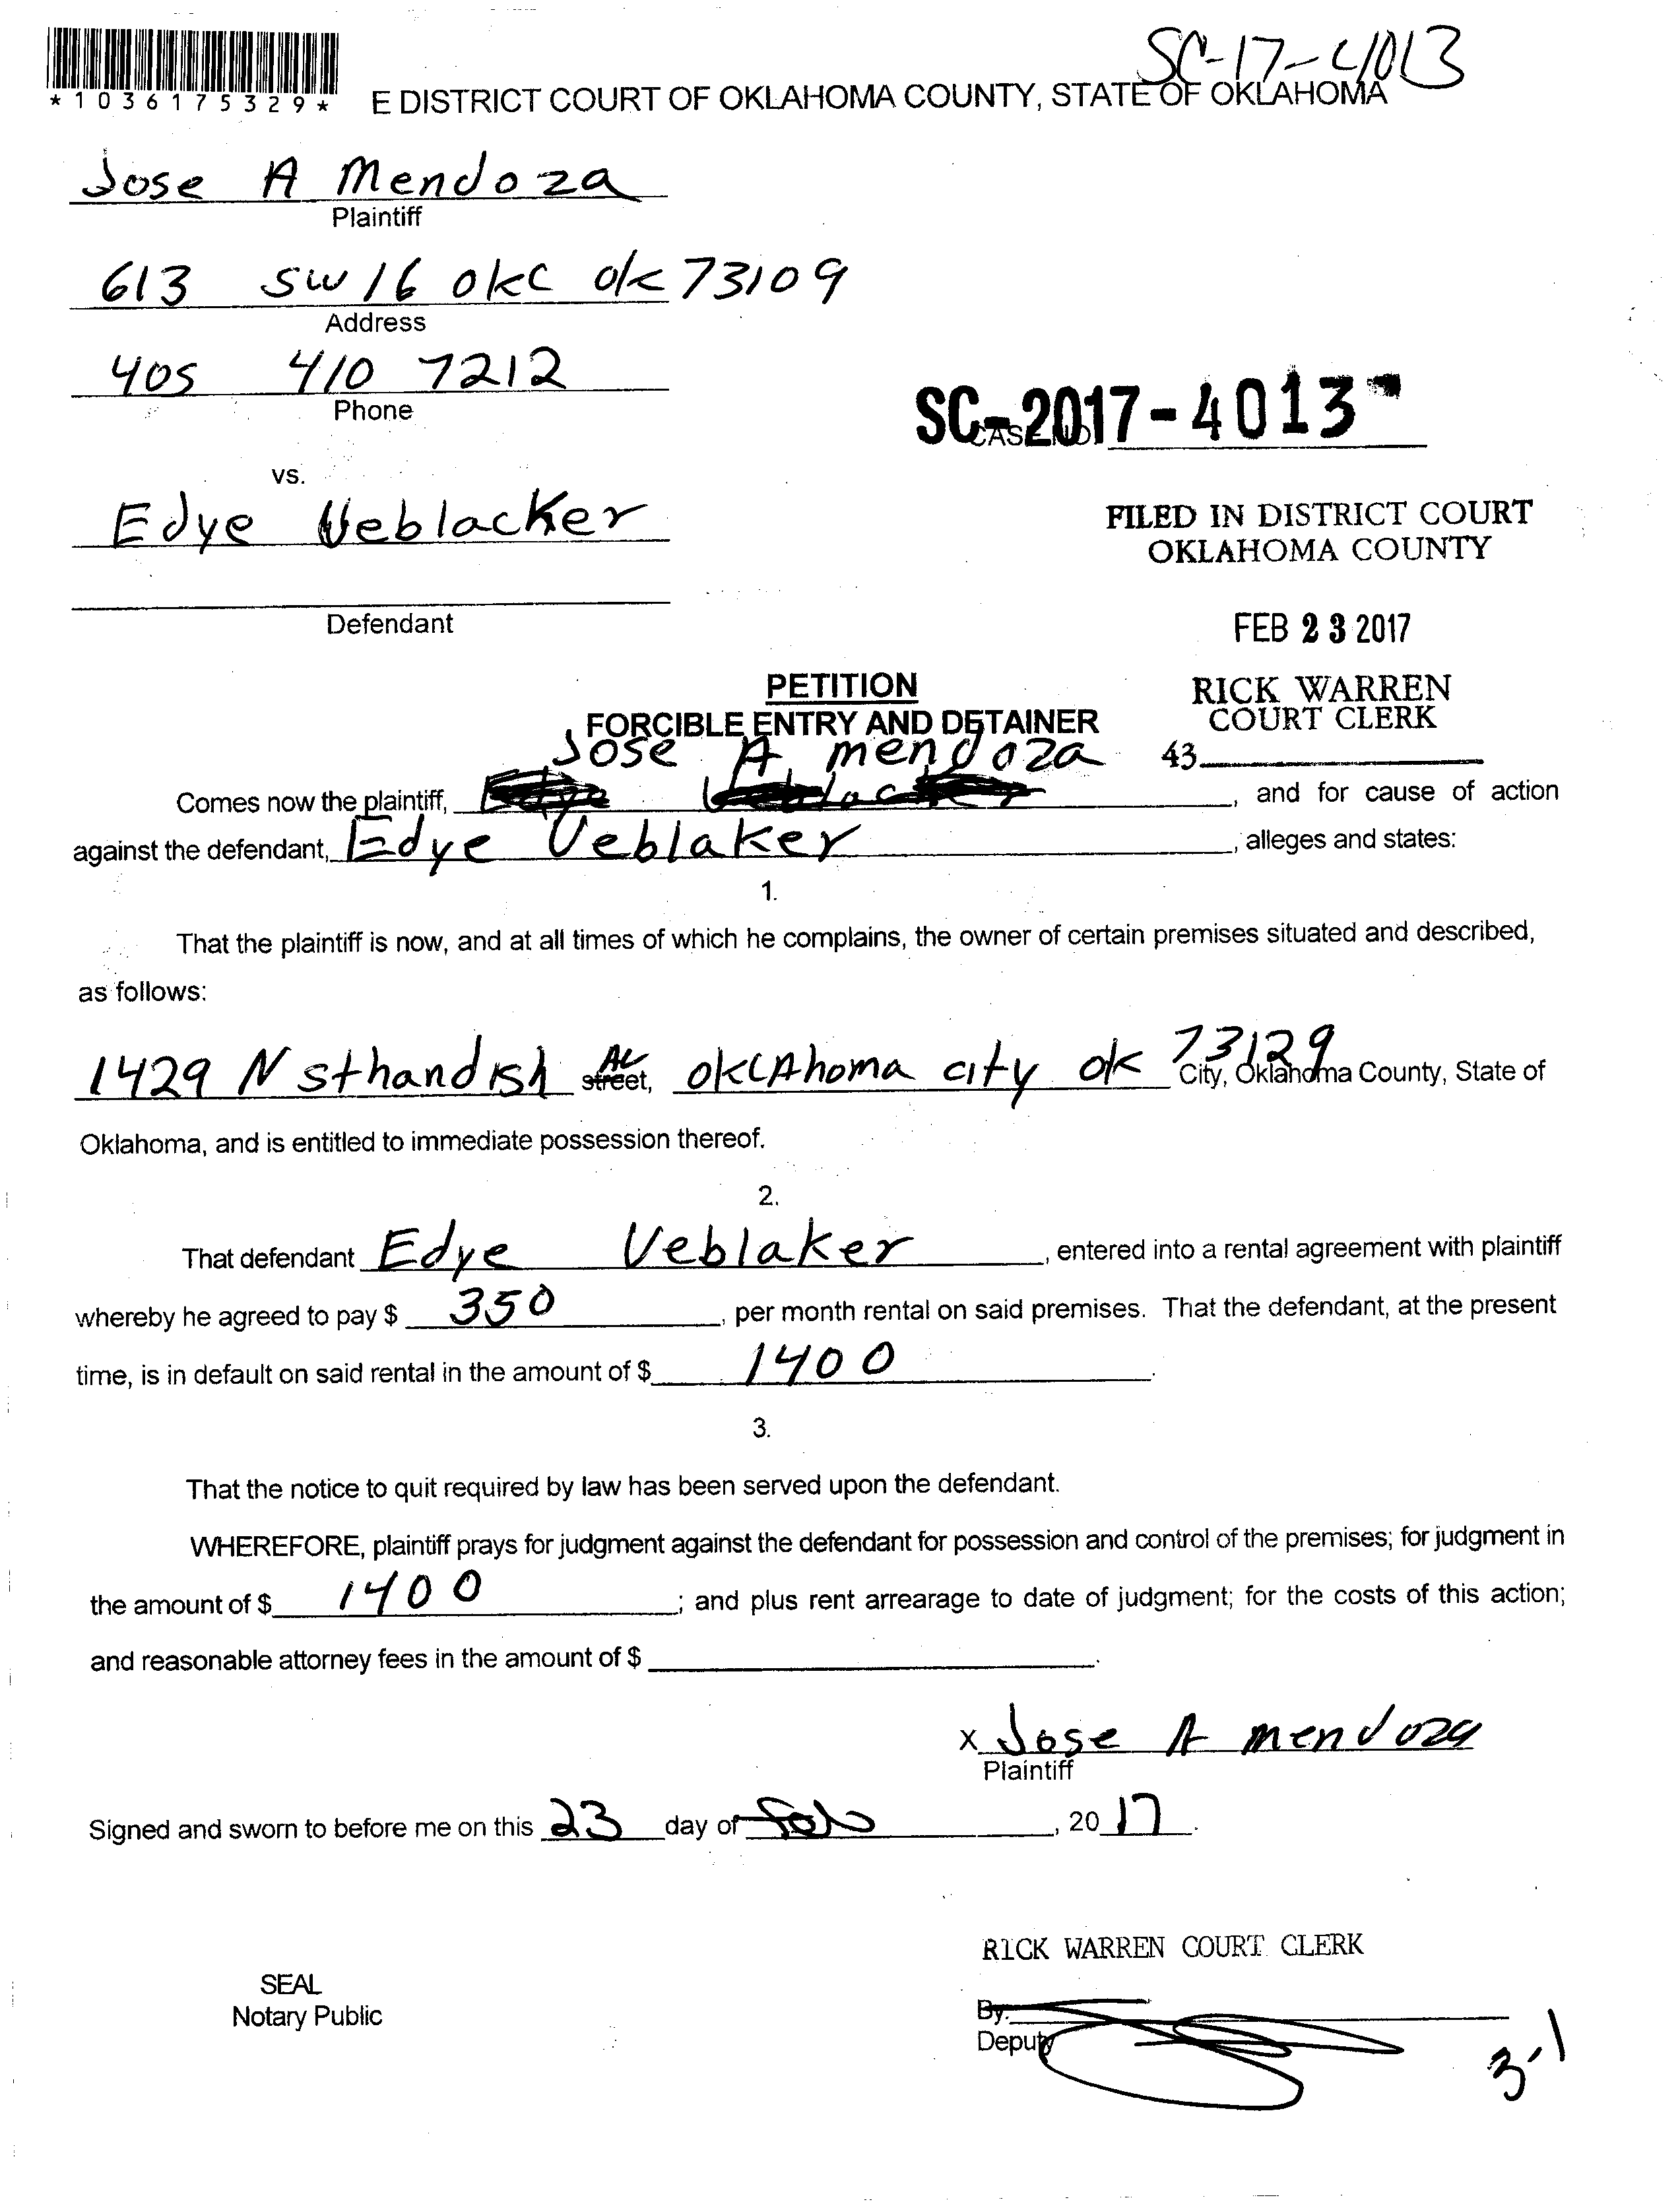 SC-17-4013
*1036175329*
E DISTRICT COURT OF OKLAHOMA COUNTY, STATE OF OKLAHOMA
Jose A Mendoza
Plaintiff
613 SW 16 okc ok 73109
Address
405 410 7212
Phone
SC-2017-4013
CASE NO.
vs.
Edye Ueblacker
Defendant
FILED IN DISTRICT COURT
OKLAHOMA COUNTY
FEB 23 2017
RICK WARREN
COURT CLERK
43
PETITION
FORCIBLE ENTRY AND DETAINER
Jose A mendoza
Comes now the plaintiff, , and for cause of action
against the defendant, Edye Ueblaker, alleges and states:
1.
That the plaintiff is now, and at all times of which he complains, the owner of certain premises situated and described,
as follows:
1429 N sthandish AV street, oklAhoma city ok 73129 City, Oklahoma County, State of
Oklahoma, and is entitled to immediate possession thereof.
2.
That defendant Edye Ueblaker, entered into a rental agreement with plaintiff
whereby he agreed to pay $ 350, per month rental on said premises. That the defendant, at the present
time, is in default on said rental in the amount of $ 1400.
3.
That the notice to quit required by law has been served upon the defendant.
WHEREFORE, plaintiff prays for judgment against the defendant for possession and control of the premises; for judgment in
the amount of $ 1400; and plus rent arrearage to date of judgment; for the costs of this action;
and reasonable attorney fees in the amount of $ .
X Jose A mendoza
Plaintiff
Signed and sworn to before me on this 23 day of Feb, 2017.
RICK WARREN COURT CLERK
SEAL
Notary Public
By:
Deputy
3-1